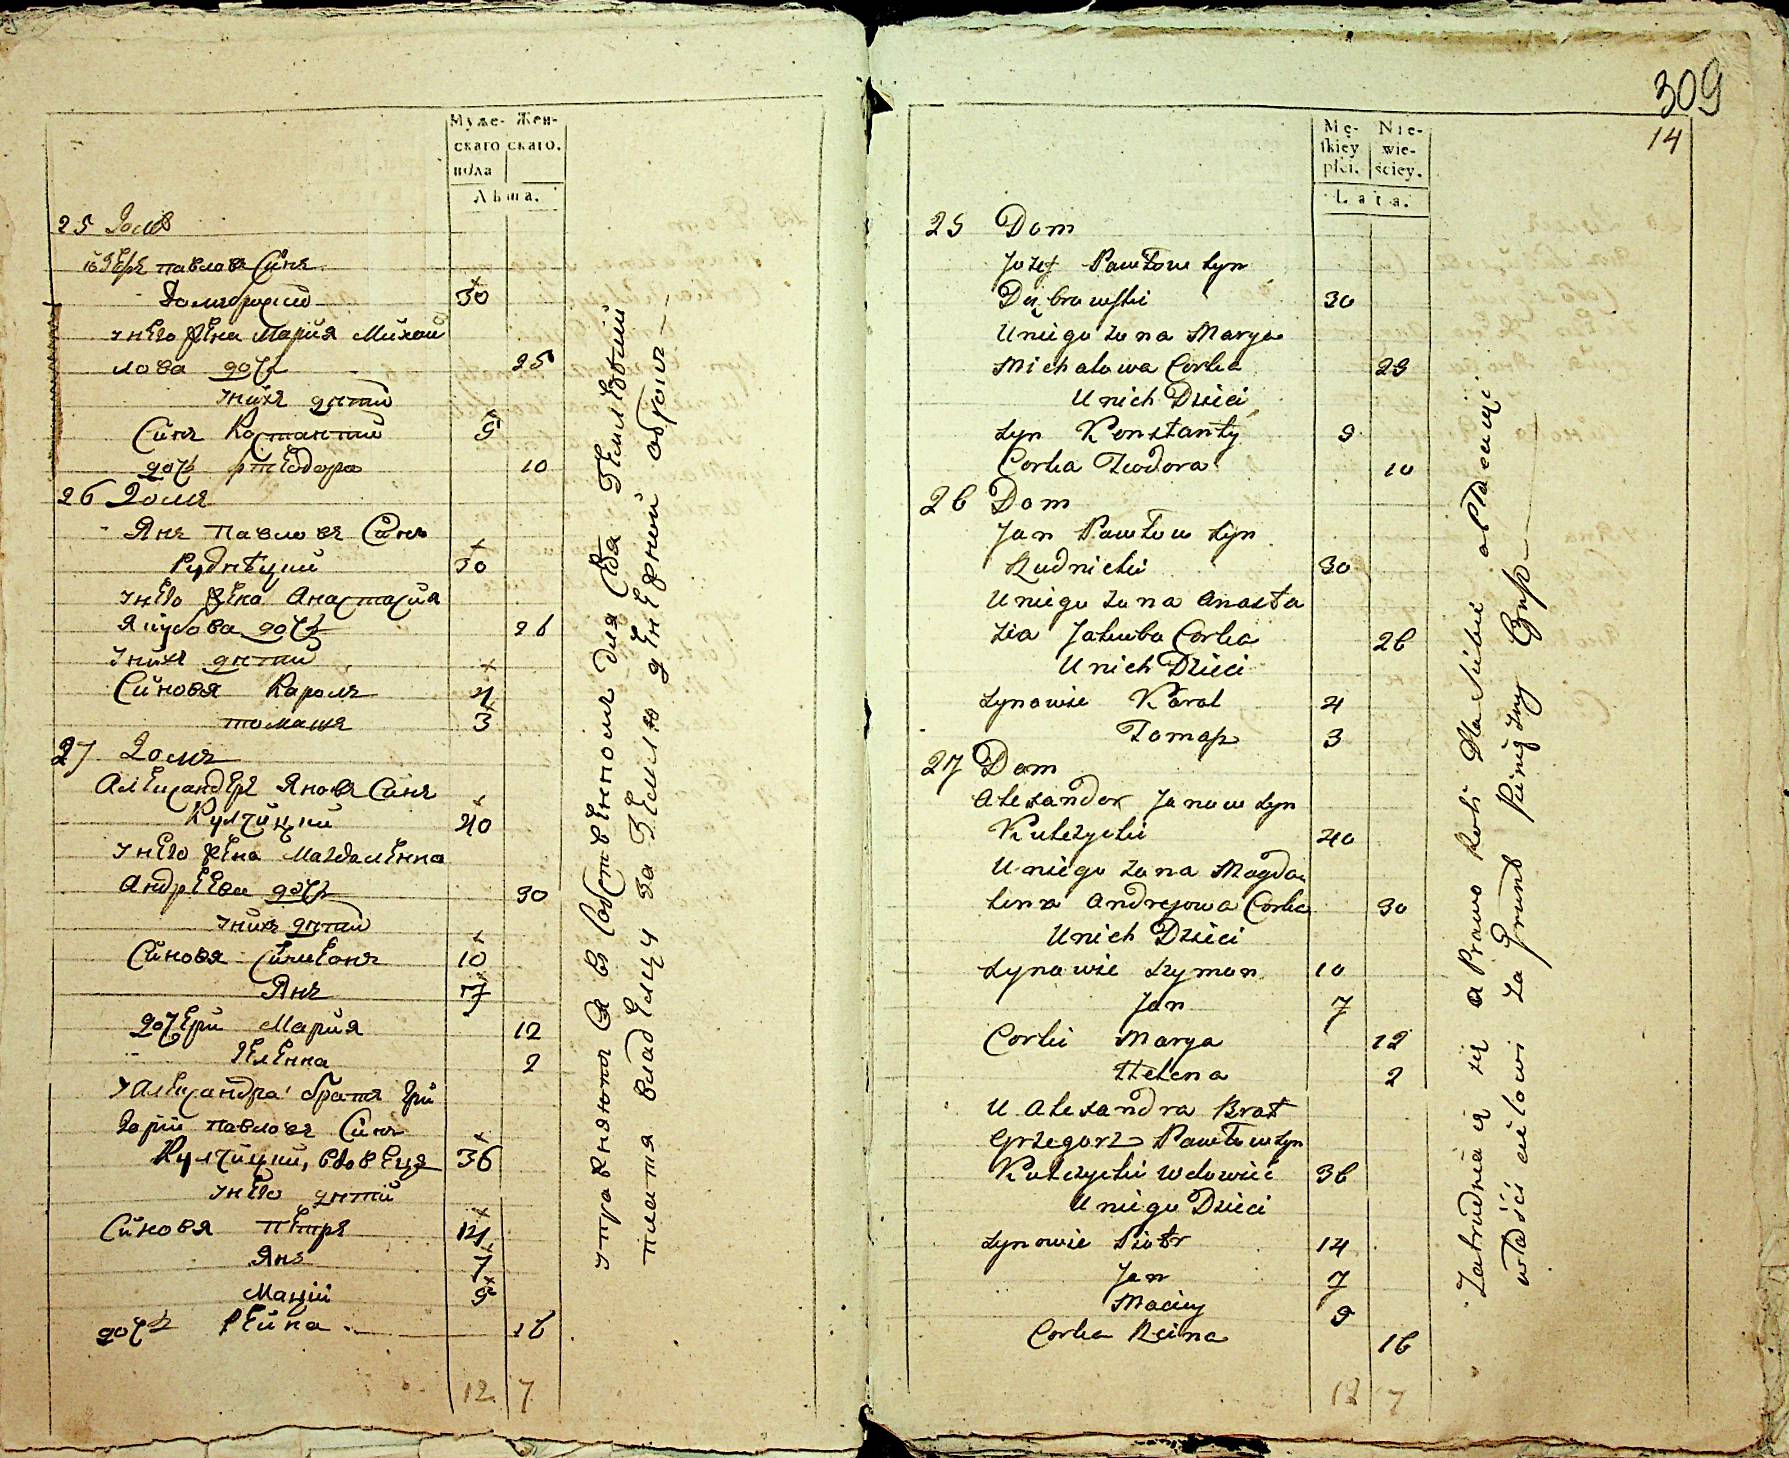 Муже- Жен-
скаго скаго.
пола
Лѣта.
25 Домъ
Іозеръ павловъ Синъ
Домбровскій 30
Унего жена Мария Михай
лова дочь 25
Унихъ дѣти
Синъ Костантий 9
дочь Ѳтеодора 10
26 Домъ
Янъ павловъ Синъ
Рудницкий 30
Унего жена Анастасия
Якубова дочь 26
Унихъ дѣти
Синовя Кароль 4
томашъ 3
27 Домъ
Александеръ Яновъ Синъ
Кулчицкий 40
Унего жена Магдаленна
Андреева дочь 30
Унихъ дѣти
Синовя Симеонъ 10
Янъ 7
дочери Мария 12
Геленна 2
У Александра братъ Гри
горий павловъ Синъ
Кулчицкий, вдовецъ 36
Унего дѣти
Синовя петръ 14
Янъ 7
Мацій 9
дочь Реина 16
12 7
упражняются въ Собственномъ для Себя Земледѣлии
платя владелцу за Землю денежной оброкъ
309
14
Mę- Nie-
skiey wie-
płci. ściey.
Lata.
25 Dom
Jozef Pawłow syn
Dąbrowski 30
Uniego zona Marya
Michałowa Corka 25
Unich Dzieci
syn Konstanty 9
Corka Teodora 10
26 Dom
Jan Pawłow syn
Rudnicki 30
Uniego zona Anasta
zia Jakuba Corka 26
Unich Dzieci
synowie Karol 4
Tomasz 3
27 Dom
Alexander Janow syn
Kulczycki 40
Uniego zona Magda
lena Andrejowa Corka 30
Unich Dzieci
synowie Szymon 10
Jan 7
Corki Marya 12
Helena 2
U Alexandra Brat
Grzegorz Pawłow syn
Kulczycki Wdowiec 36
Uniego Dzieci
synowie Piotr 14
Jan 7
Maciey 9
Corka Reina 16
12 7
Zatrudnia ią się Prawo Roli Dla siebie opłacaiąc
właścicielowi za Grunt Pieniężny Czynsz